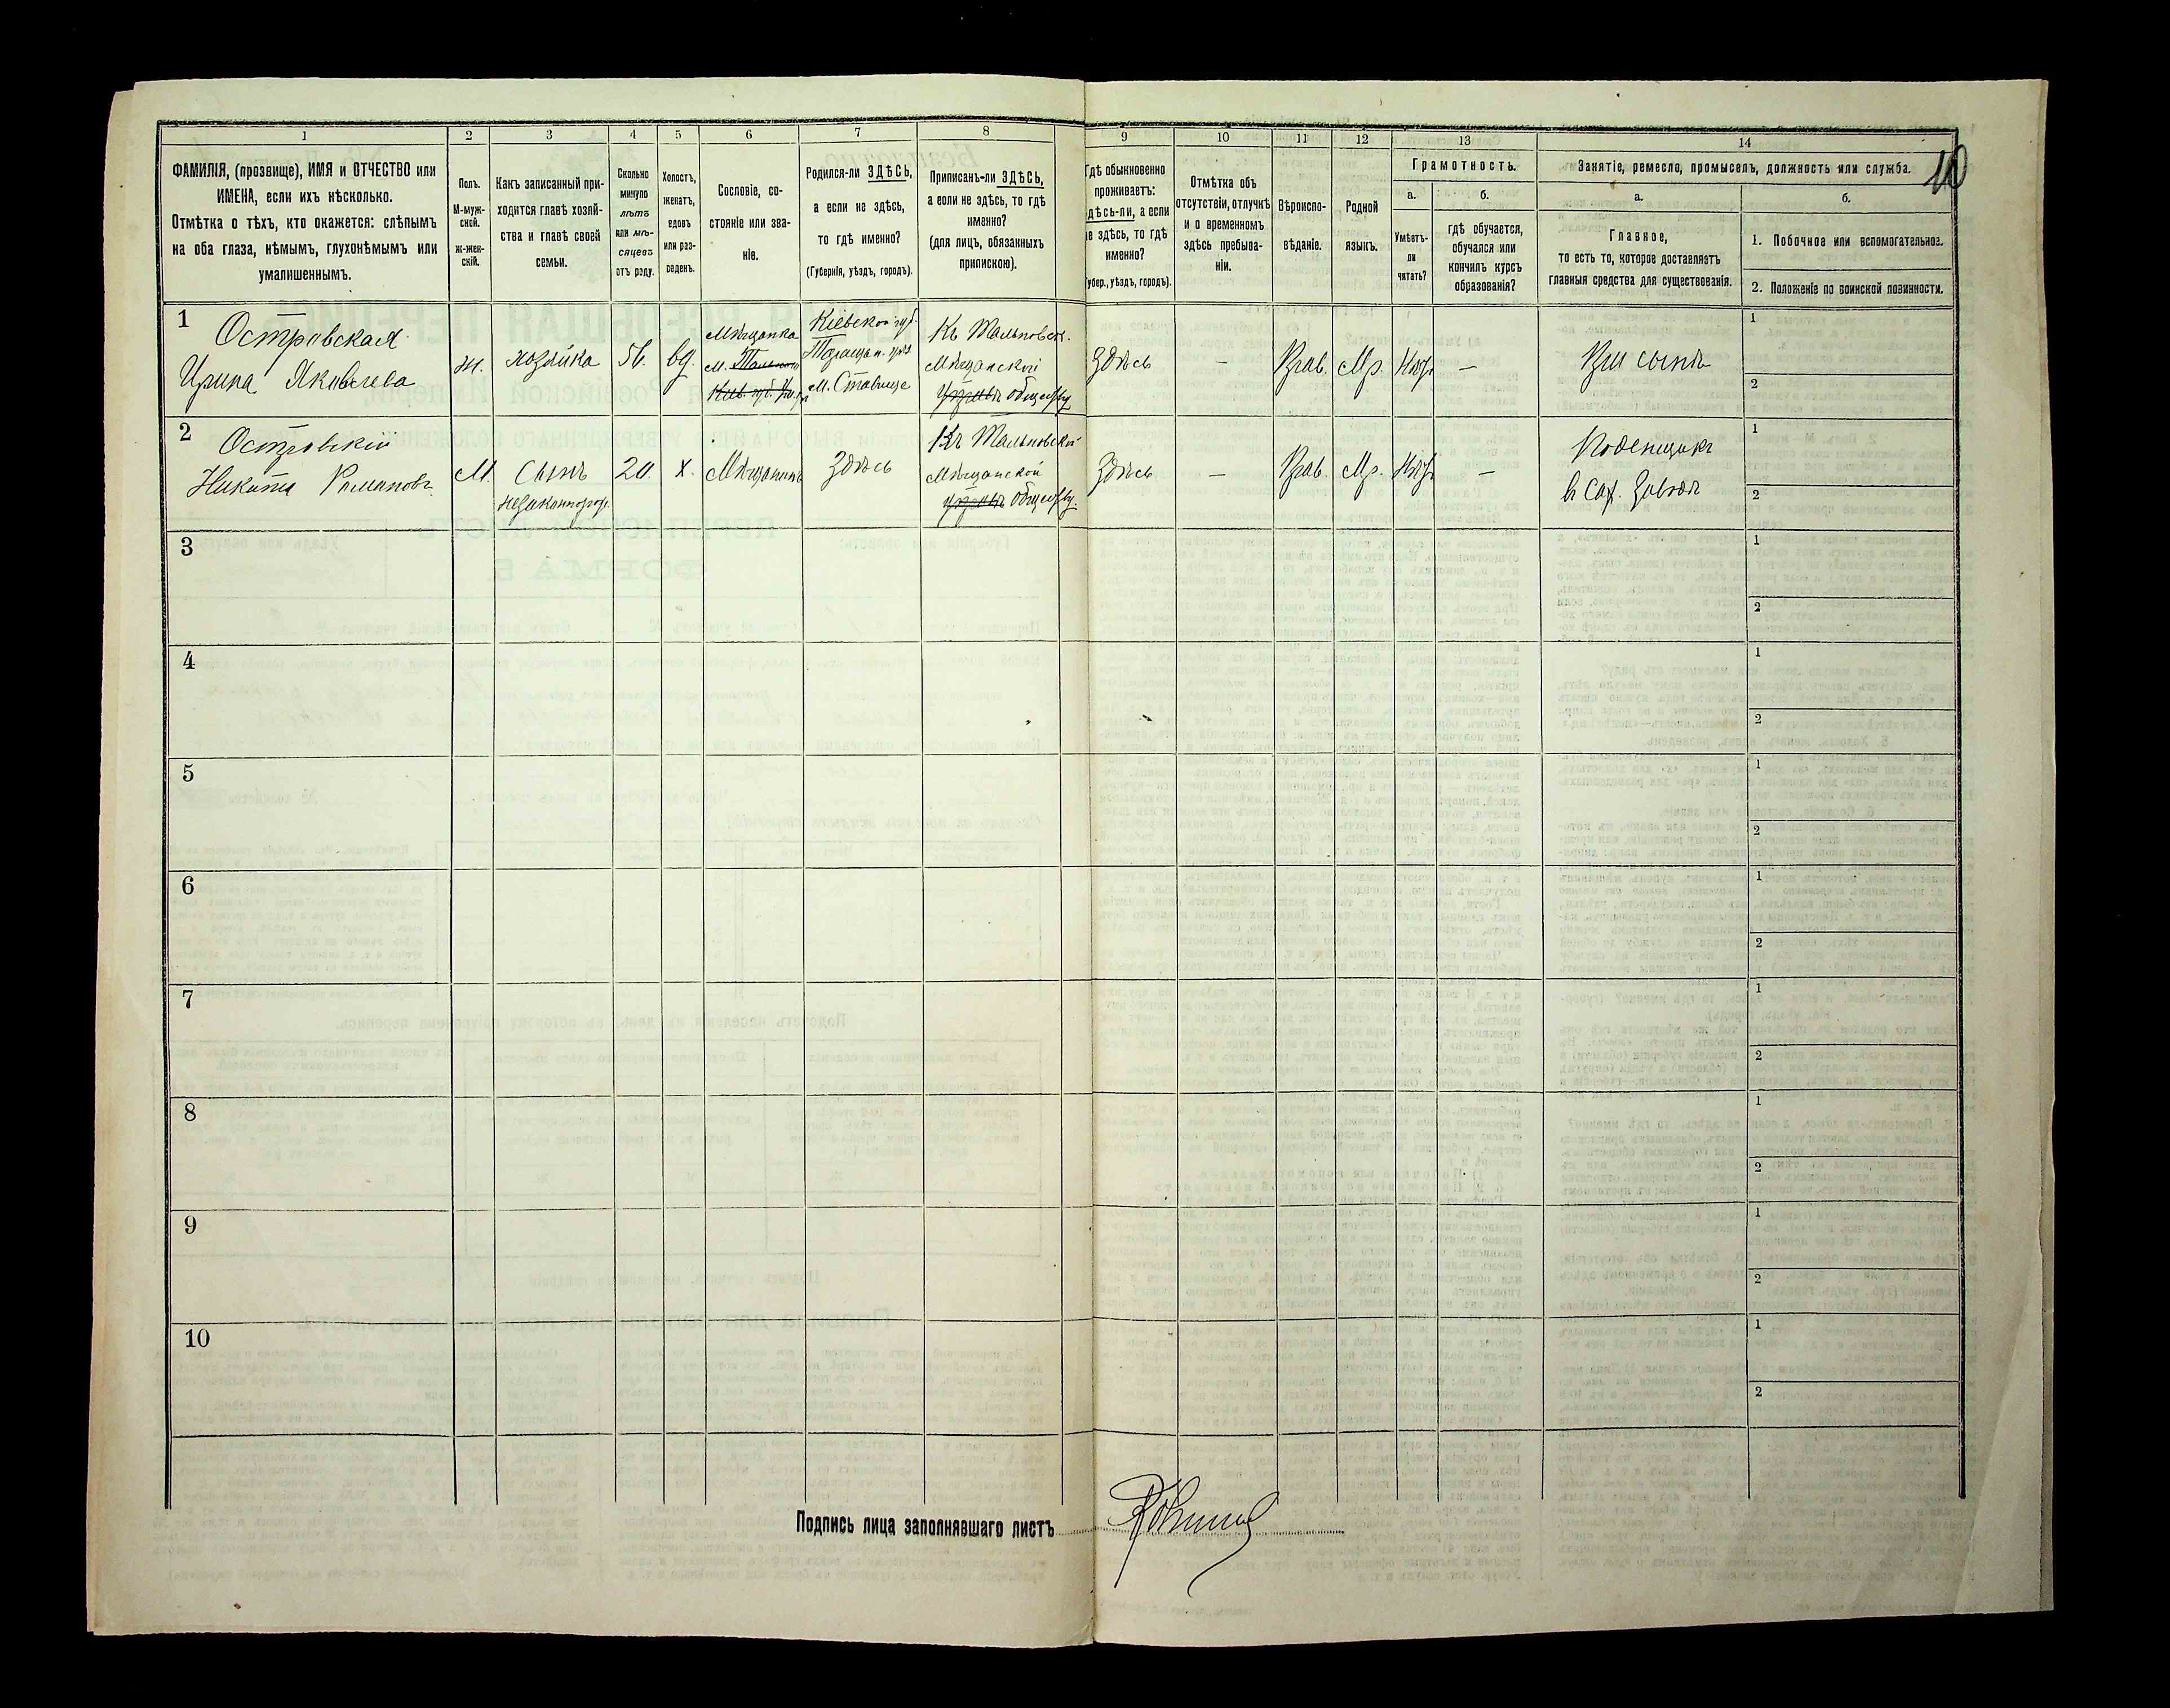 1 2 3 4 5 6 7 8 9 10 11 12 13 14
10
ФАМИЛІЯ, (прозвище), ИМЯ и ОТЧЕСТВО или
ИМЕНА, если ихъ нѣсколько.
Отмѣтка о тѣхъ, кто окажется: слѣпымъ
на оба глаза, нѣмымъ, глухонѣмымъ или
умалишеннымъ.
Полъ.
М-муж-
ской.
ж-жен-
скій.
Какъ записанный при-
ходится главѣ хозяй-
ства и главѣ своей
семьи.
Сколько
минуло
лѣтъ
или мѣ-
сяцевъ
отъ роду.
Холостъ,
женатъ,
вдовъ
или раз-
веденъ.
Сословіе, со-
стояніе или зва-
ніе.
Родился-ли ЗДѢСЬ,
а если не здѣсь,
то гдѣ именно?
(Губернія, уѣздъ, городъ).
Приписанъ-ли ЗДѢСЬ,
а если не здѣсь, то гдѣ
именно?
(для лицъ, обязанныхъ
припискою).
Гдѣ обыкновенно
проживаетъ:
здѣсь-ли, а если
не здѣсь, то гдѣ
именно?
(Губер., уѣздъ, городъ).
Отмѣтка объ
отсутствіи, отлучкѣ
и о временномъ
здѣсь пребыва-
ніи.
Вѣроиспо-
вѣданіе.
Родной
языкъ.
Грамотность.
а.
Умѣетъ-
ли
читать?
б.
гдѣ обучается,
обучался или
кончилъ курсъ
образованія?
Занятіе, ремесло, промыселъ, должность или служба.
а.
Главное,
то есть то, которое доставляетъ
главныя средства для существованія.
б.
1. Побочное или вспомогательное.
2. Положеніе по воинской повинности.
1
Островская
Ирина Яковлева
ж.
хозяйка
56.
вд.
Мѣщанка
м. Тальное
Кіевской губ.
Таращан. уѣз.
м. Ставище
Къ Тальновск.
мѣщанской
управѣ обществу
Здѣсь
—
Прав.
Мр.
Нѣтъ
—
При сынѣ
1
2
2
Островскій
Никита Романовъ
М.
Сынъ
незаконнорож.
20.
х.
Мѣщанинъ
Здѣсь
Къ Тальновской
Мѣщанской
управѣ обществу.
Здѣсь
—
Прав.
Мр.
Нѣтъ
—
Поденщикъ
в Сах. Заводѣ
1
2
3
1
2
4
1
2
5
1
2
6
1
2
7
1
2
8
1
2
9
1
2
10
1
2
Подпись лица заполнявшаго листъ